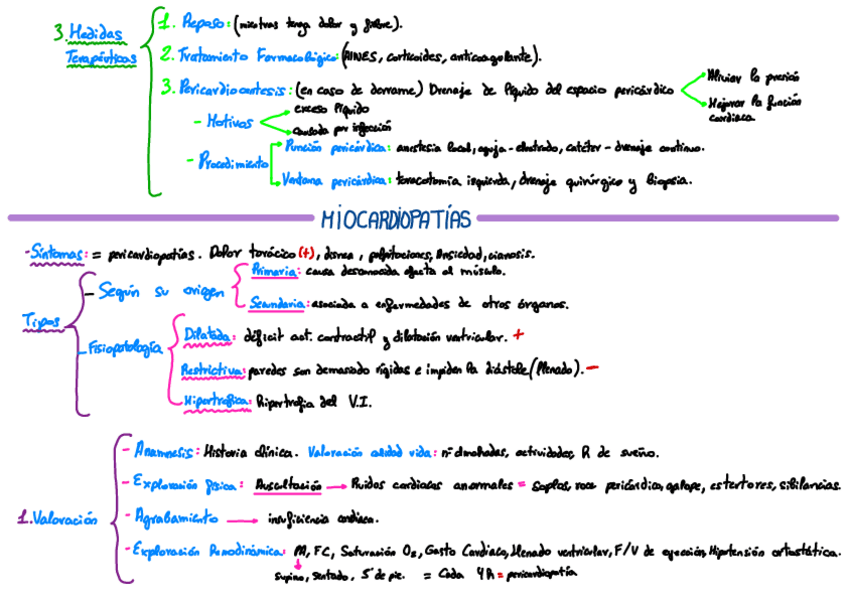 3. Medidas Terapéuticas
1. Reposo: (mientras tenga dolor y fiebre).
2. Tratamiento Farmacológico: (AINES, corticoides, anticoagulante).
3. Pericardiocentesis: (en caso de derrame) Drenaje de líquido del espacio pericárdico
Aliviar la presión
Mejorar la función cardiaca
- Motivos
exceso líquido
causada por infección
- Procedimiento
Punción pericárdica: anestesia local, aguja-electrodo, catéter-drenaje continuo.
Ventana pericárdica: toracotomía izquierda, drenaje quirúrgico y biopsia.
MIOCARDIOPATÍAS
- Síntomas: = pericardiopatías. Dolor torácico (+), disnea, palpitaciones, Ansiedad, cianosis.
Tipos
- Según su origen
Primaria: causa desconocida afecta al músculo.
Secundaria: asociada a enfermedades de otros órganos.
- Fisiopatología
Dilatada: déficit act. contractil y dilatación ventricular. +
Restrictiva: paredes son demasiado rígidas e impiden la diástole (llenado). -
Hipertrófica: Hipertrofia del V.I.
1. Valoración
- Anamnesis: Historia clínica. Valoración calidad vida: nº almohadas, actividades, R de sueño.
- Exploración física: Auscultación → Ruidos cardiacos anormales = Soplos, roce pericárdico, galope, estertores, sibilancias.
- Agrabamiento → insuficiencia cardiaca.
- Exploración Hemodinámica: FC, Saturación O₂, Gasto Cardiaco, llenado ventricular, F/V de eyección, Hipotensión ortostática.
supino, sentado, 5' de pie. = Cada 4h = pericardiopatía